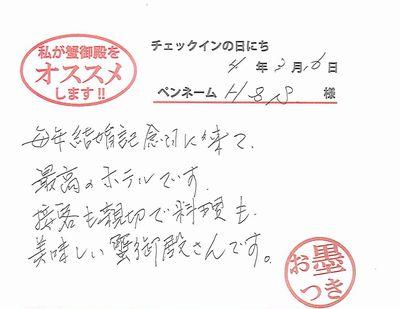 私が蟹御殿を
オススメ
します!!
チェックインの日にち
4年3月6日
ペンネーム H&S 様
毎年結婚記念日に来て、
最高のホテルです。
接客も親切で料理も
美味しい蟹御殿さんです。
お墨
つき